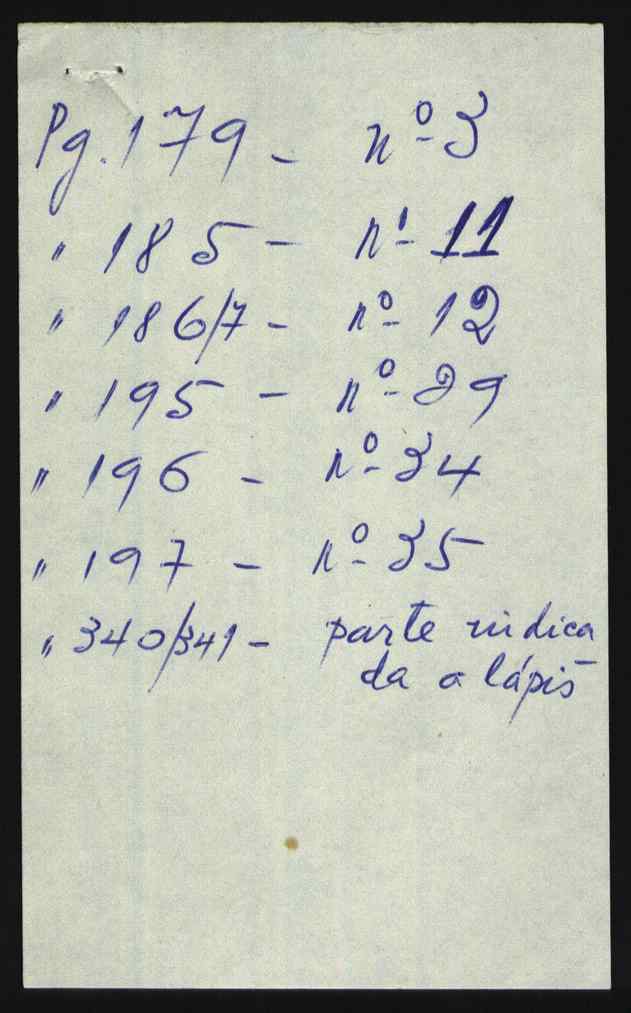 Pg. 179 - nº 3
" 185 - nº 11
" 186/7 - nº 12
" 195 - nº 29
" 196 - nº 34
" 197 - nº 35
" 340/341 - parte indica
da a lápis